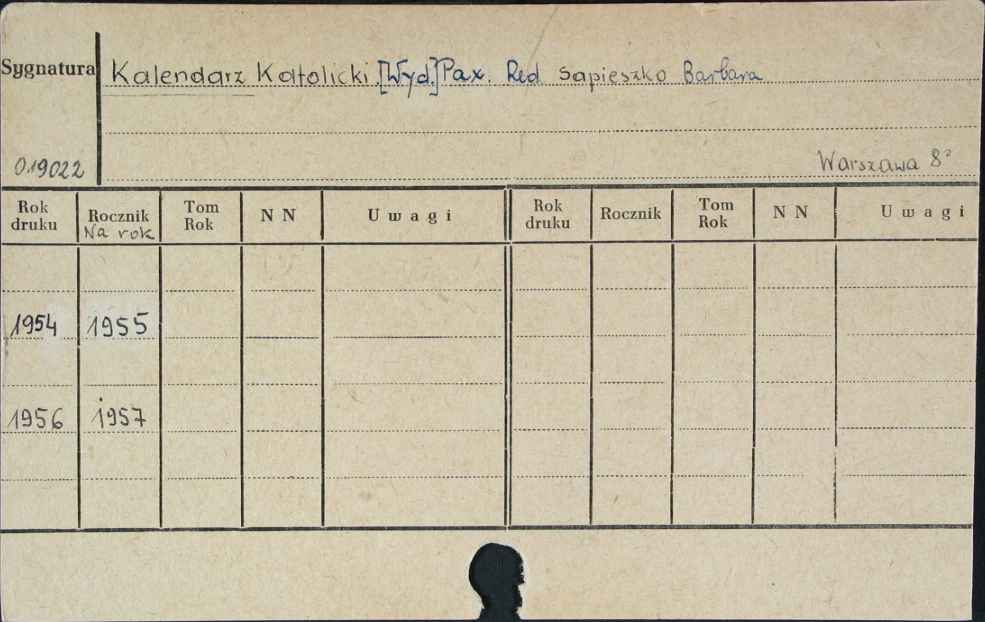 Sygnatura Kalendarz Katolicki [Wyd.] Pax. Red Sapieszko Barbara
019022 Warszawa 8°
Rok druku Rocznik Na rok Tom Rok N N Uwagi Rok druku Rocznik Tom Rok N N Uwagi
1954 1955
1956 1957